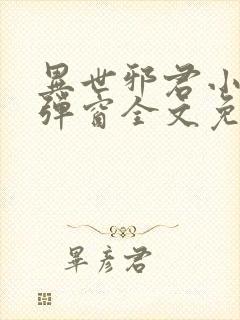 異世邪君小
彈窗全文免
畢彥君